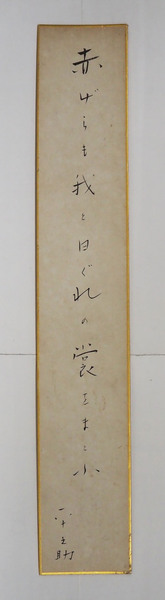 赤げらも我も日ぐれの裳をまとふ